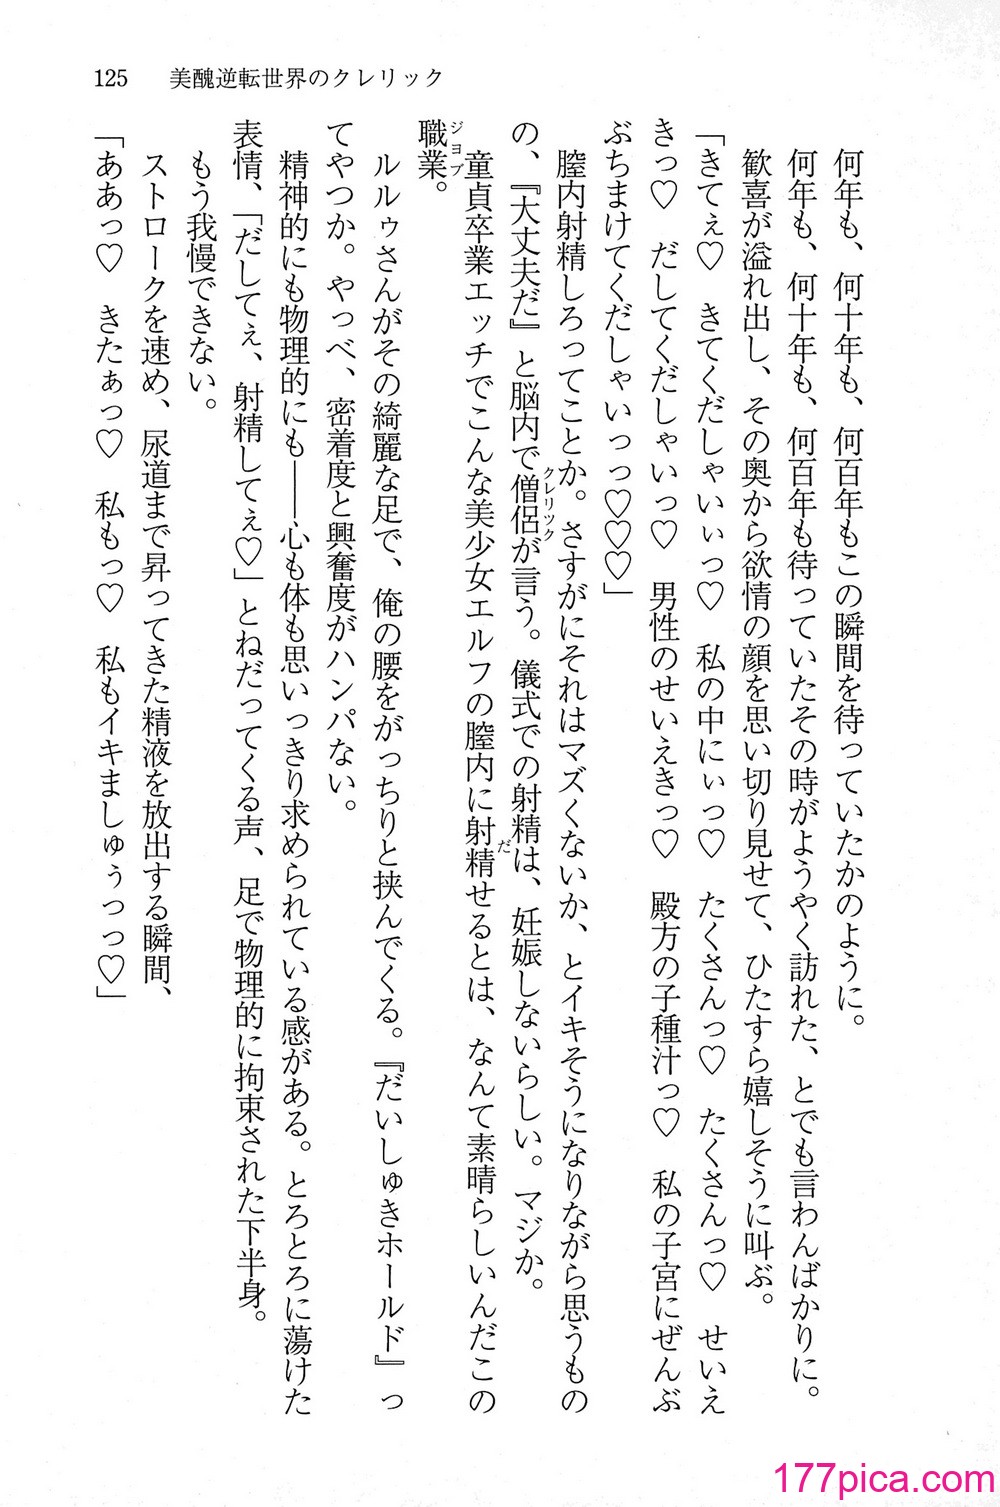 125　美醜逆転世界のクレリック
何年も、何十年も、何百年もこの瞬間を待っていたかのように。
何年も、何十年も、何百年も待っていたその時がようやく訪れた、とでも言わんばかりに。
歓喜が溢れ出し、その奥から欲情の顔を思い切り見せて、ひたすら嬉しそうに叫ぶ。
「きてぇ♡　きてくだしゃいぃっ♡　私の中にぃっ♡　たくさんっ♡　たくさんっ♡　せいえ
きっ♡　だしてくだしゃいっ♡　男性のせいえきっ♡　殿方の子種汁っ♡　私の子宮にぜんぶ
ぶちまけてくだしゃいっっ♡♡♡」
膣内射精しろってことか。さすがにそれはマズくないか、とイキそうになりながら思うもの
の、『大丈夫だ』と脳内で僧侶クレリックが言う。儀式での射精は、妊娠しないらしい。マジか。
童貞卒業エッチでこんな美少女エルフの膣内に射精だせるとは、なんて素晴らしいんだこの
職業ジョブ。
ルルゥさんがその綺麗な足で、俺の腰をがっちりと挟んでくる。『だいしゅきホールド』っ
てやつか。やっべ、密着度と興奮度がハンパない。
精神的にも物理的にも――心も体も思いっきり求められている感がある。とろとろに蕩けた
表情、「だしてぇ、射精してぇ♡」とねだってくる声、足で物理的に拘束された下半身。
もう我慢できない。
ストロークを速め、尿道まで昇ってきた精液を放出する瞬間、
「ああっ♡　きたぁっ♡　私もっ♡　私もイキましゅぅっっ♡」
177pica.com